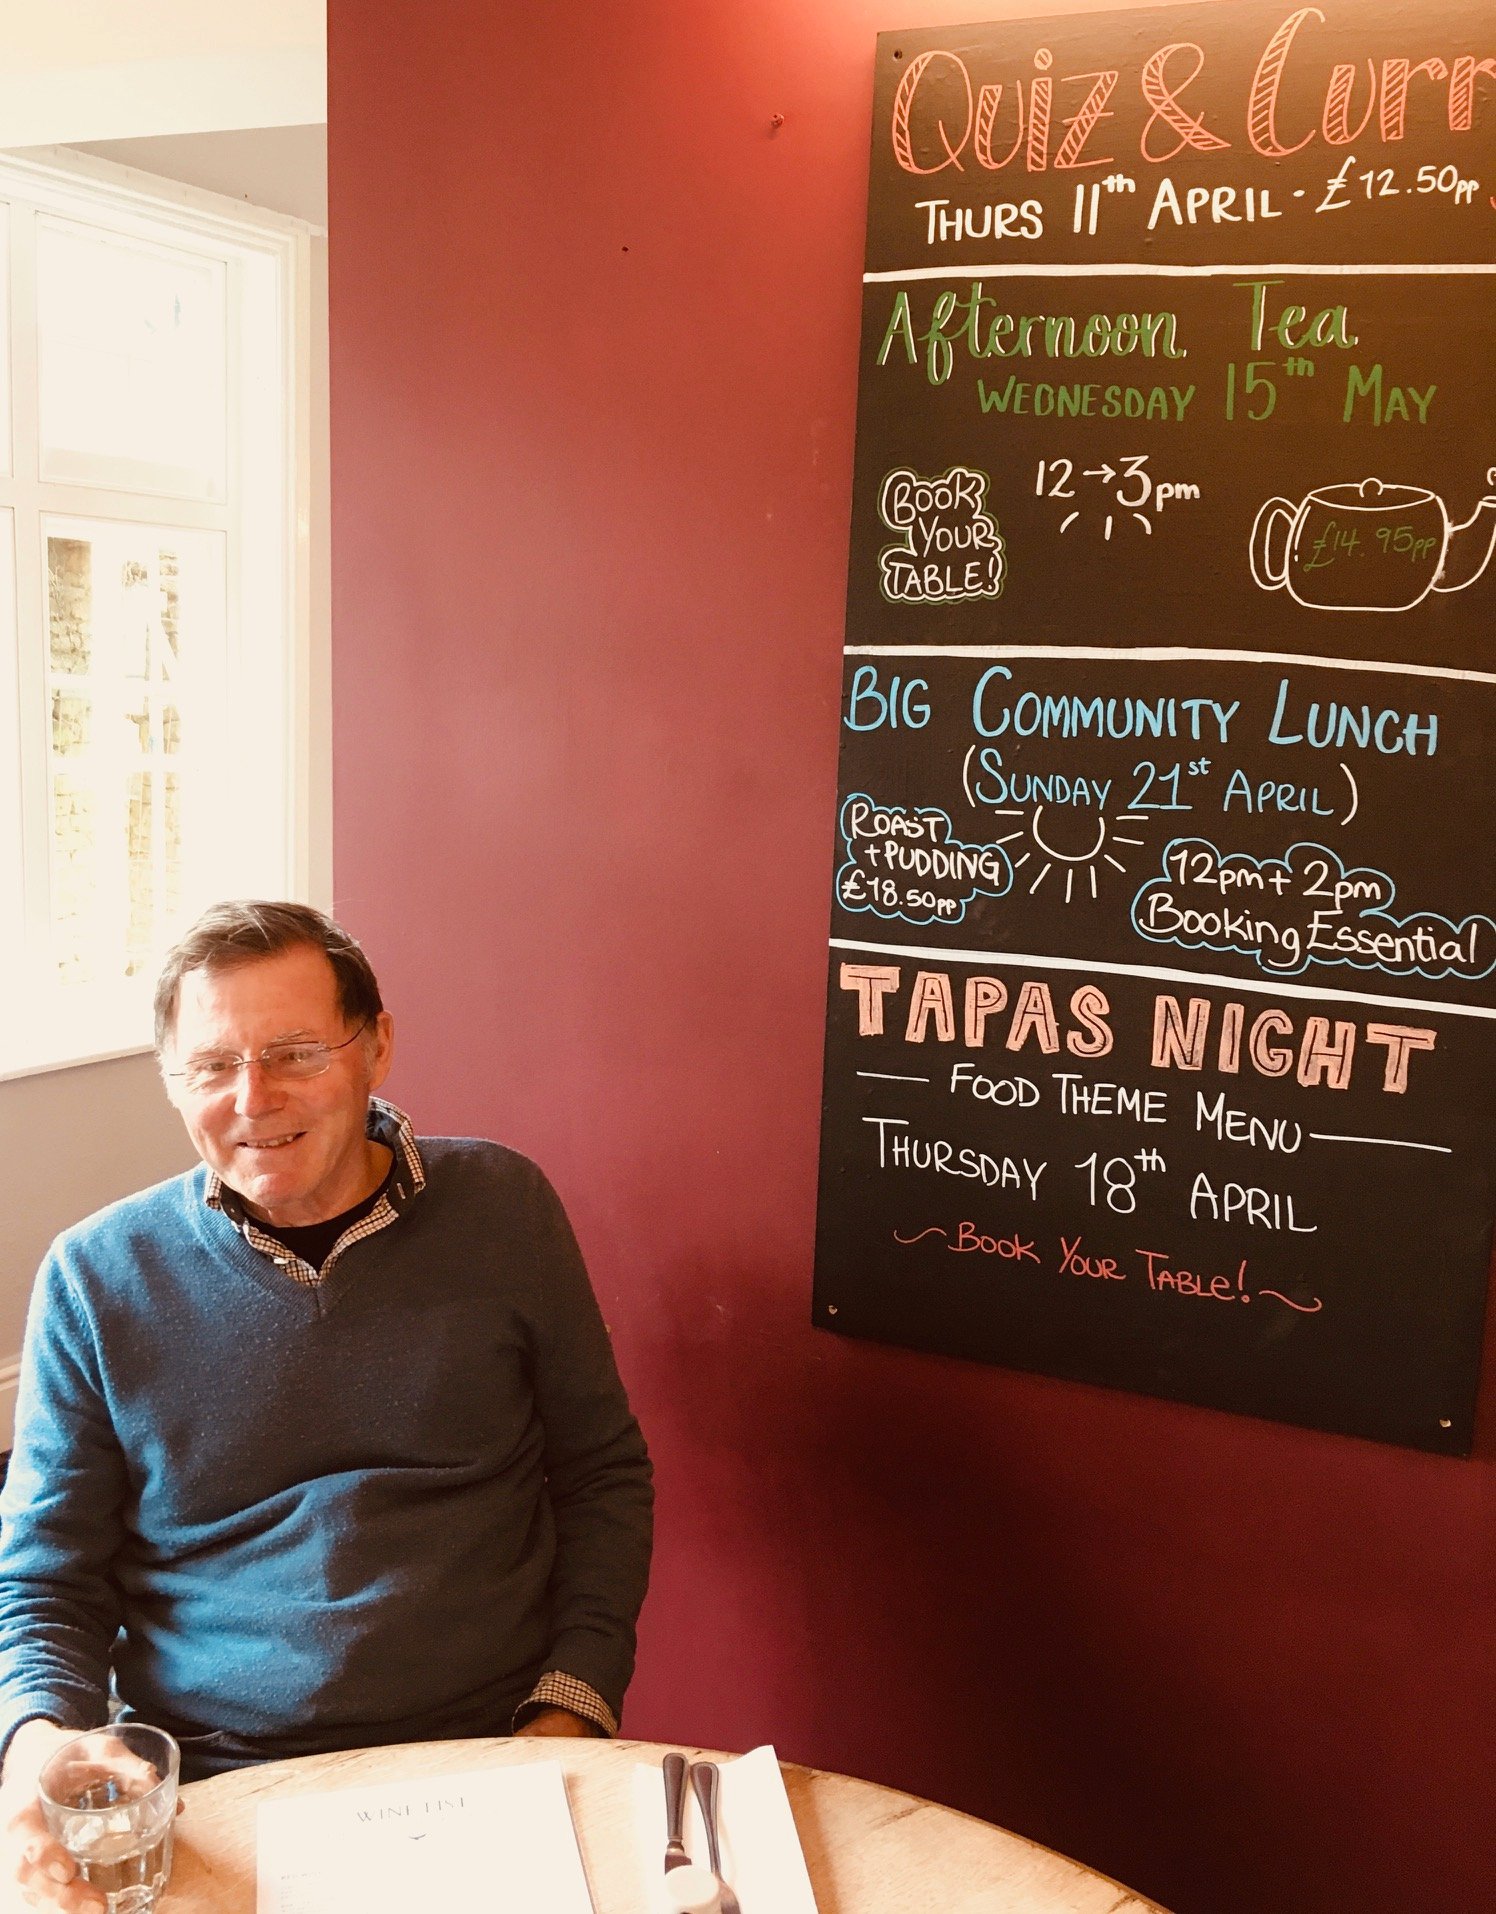 Quiz & Curr
THURS 11th APRIL - £12.50pp
Afternoon Tea
WEDNESDAY 15th MAY
12→3pm
BOOK
YOUR
TABLE!
£14.95pp
BIG COMMUNITY LUNCH
(SUNDAY 21st APRIL)
ROAST
+ PUDDING
£18.50pp
12pm + 2pm
Booking Essential
TAPAS NIGHT
— FOOD THEME MENU —
THURSDAY 18th APRIL
~ BOOK YOUR TABLE! ~
WINE LIST